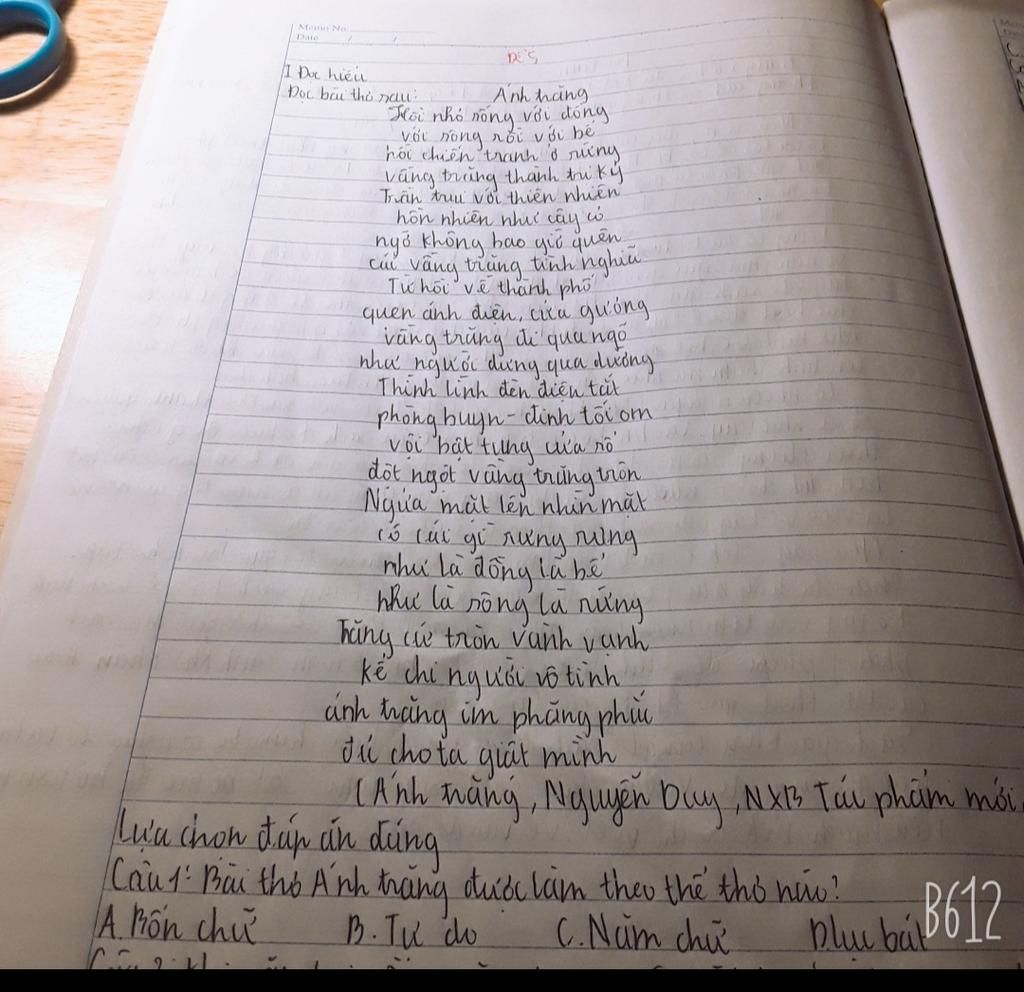 Memo No.
Date / /
ĐỀ 5
I Đọc hiểu
Đọc bài thơ sau: Ánh trăng
Hồi nhỏ sống với đồng
với sông rồi với bể
hồi chiến tranh ở rừng
vầng trăng thành tri kỷ
Trần trụi với thiên nhiên
hồn nhiên như cây cỏ
ngỡ không bao giờ quên
cái vầng trăng tình nghĩa
Từ hồi về thành phố
quen ánh điện, cửa gương
vầng trăng đi qua ngõ
như người dưng qua đường
Thình lình đèn điện tắt
phòng buyn-đinh tối om
vội bật tung cửa sổ
đột ngột vầng trăng tròn
Ngửa mặt lên nhìn mặt
có cái gì rưng rưng
như là đồng là bể
như là sông là rừng
Trăng cứ tròn vành vạnh
kể chi người vô tình
ánh trăng im phăng phắc
đủ cho ta giật mình
(Ánh trăng, Nguyễn Duy, NXB Tác phẩm mới,
Lựa chọn đáp án đúng
Câu 1: Bài thơ Ánh trăng được làm theo thể thơ nào?
A. Bốn chữ B. Tự do C. Năm chữ D. lục bát
B612